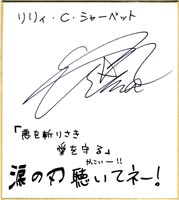 リリィ・C・シャーベット
「悪を斬りさき
愛を守る」
かっこいー!!
涙の刃 聴いてネー!